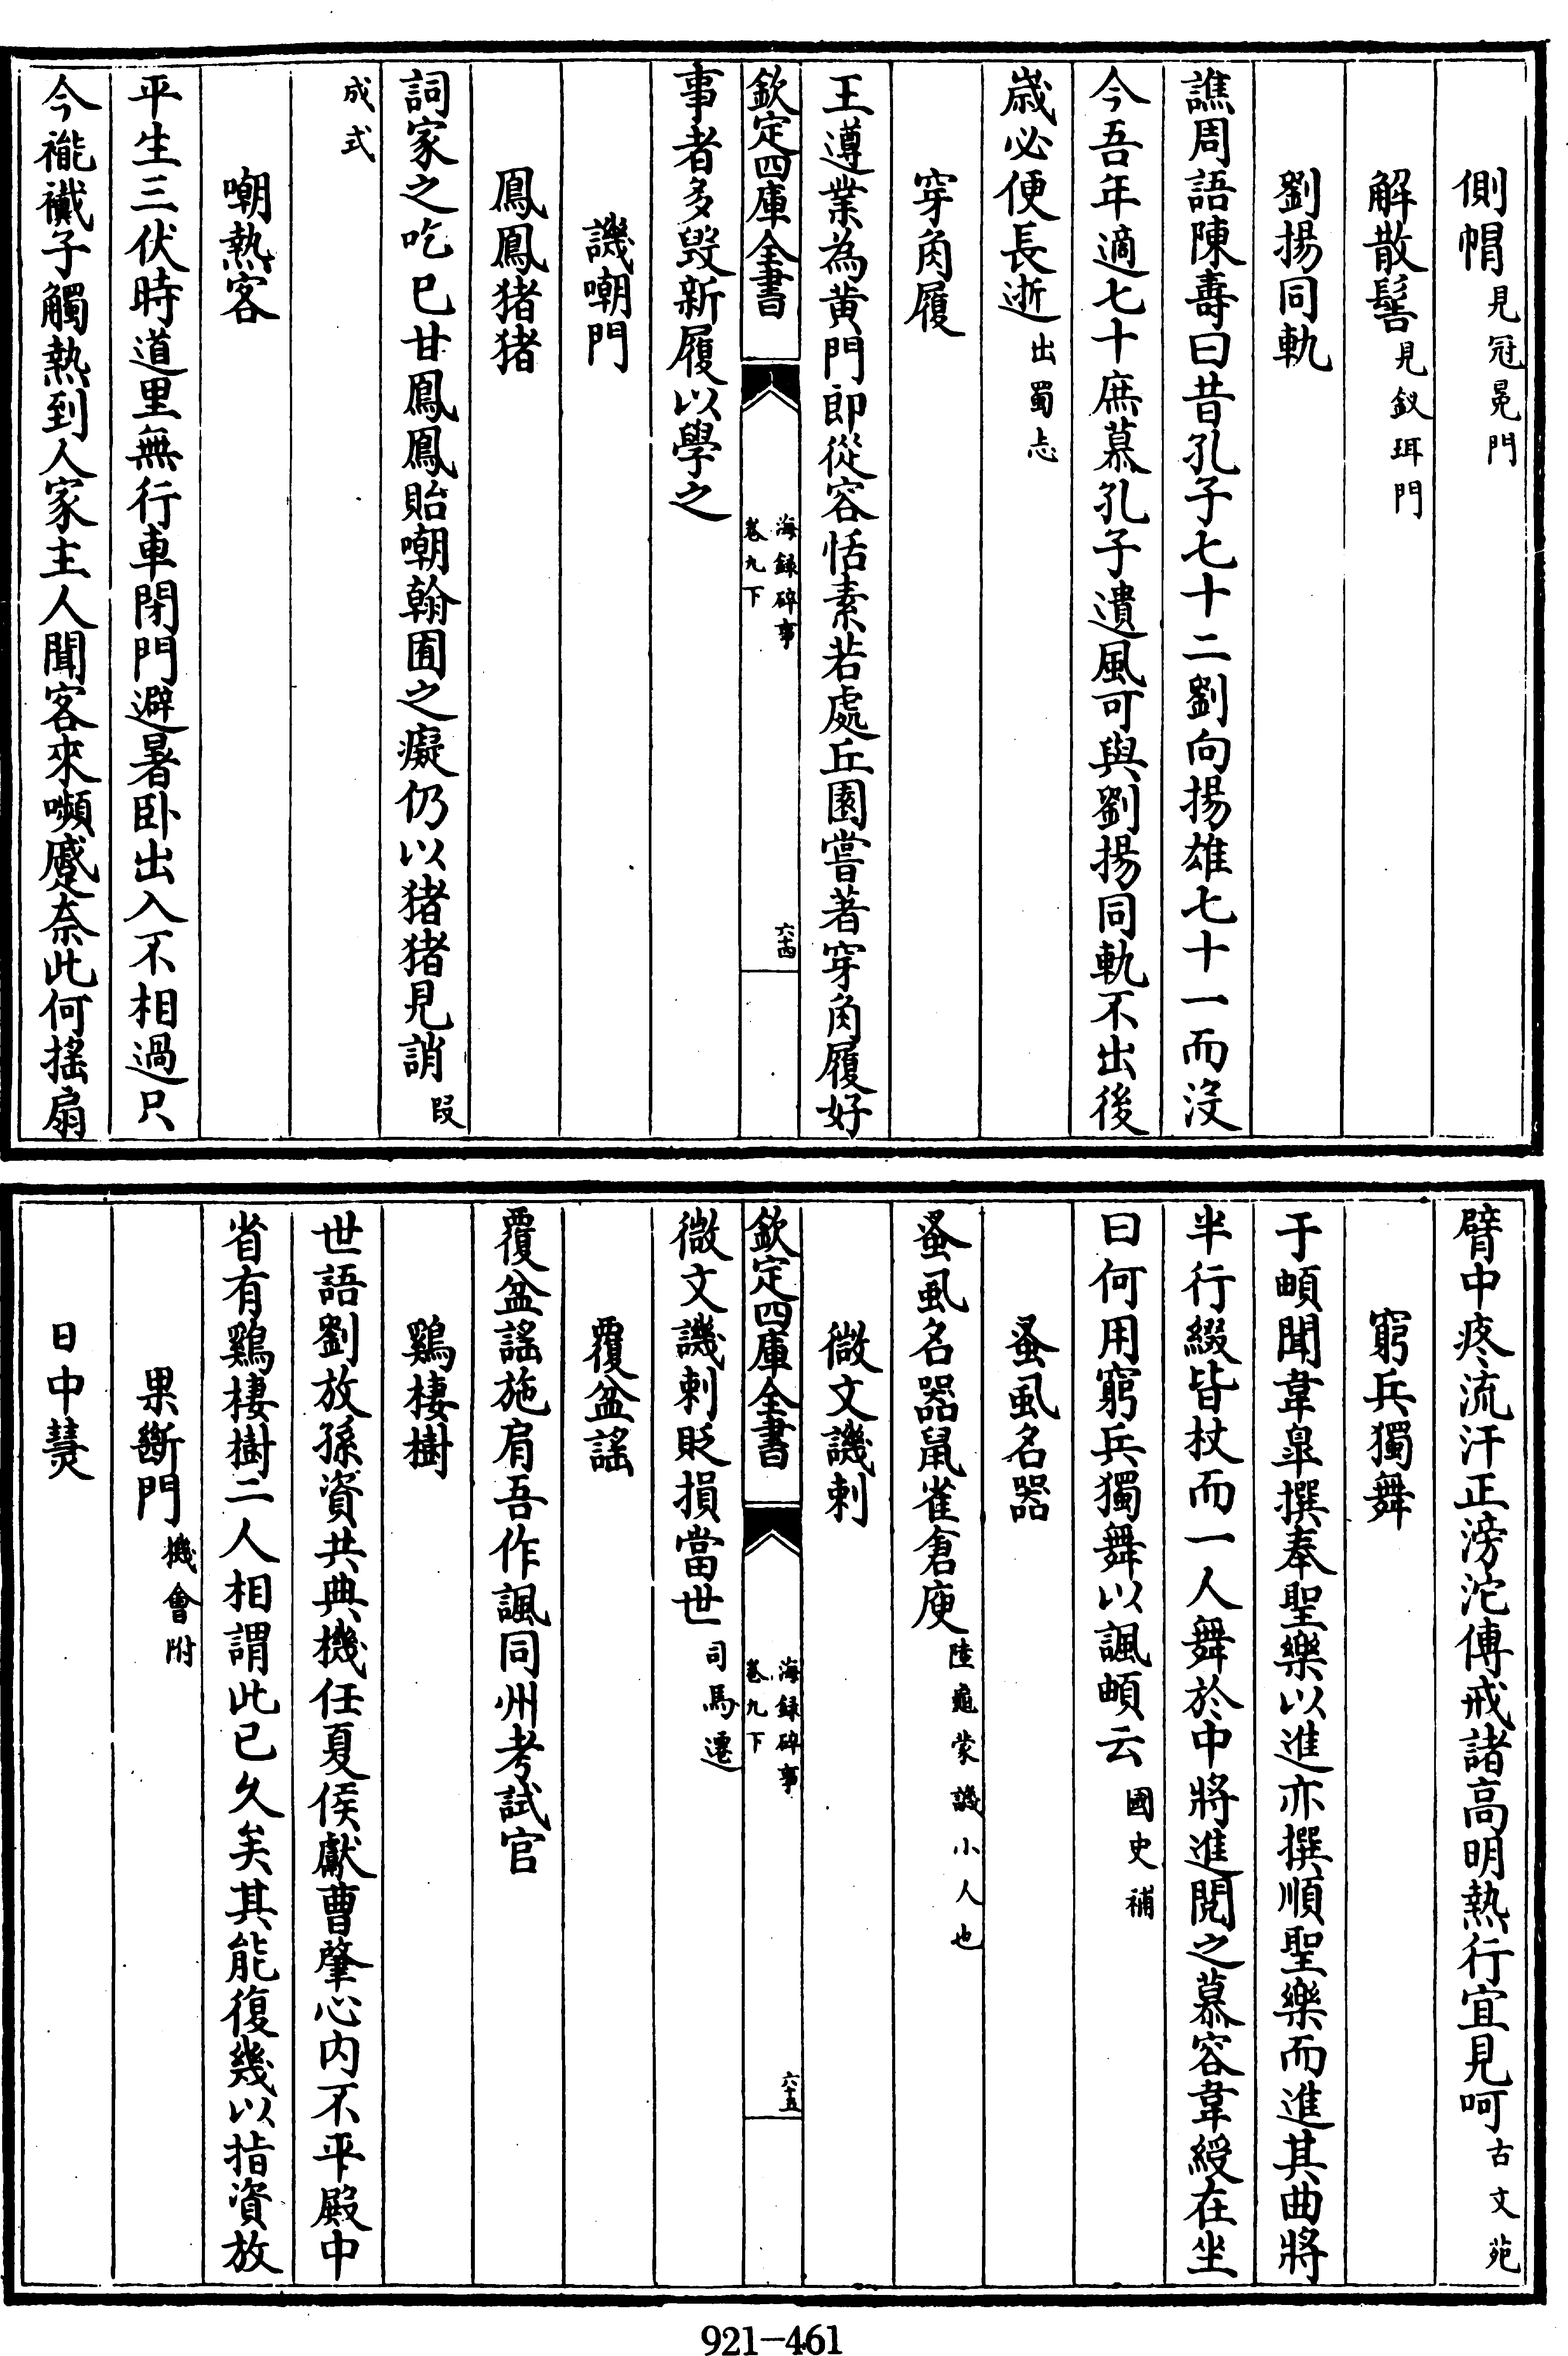 側帽見冠冕門
解散髻見釵珥門
劉揚同軌
譙周語陳壽曰昔孔子七十二劉向揚雄七十一而沒
今吾年適七十庶慕孔子遺風可與劉揚同軌不出後
歲必便長逝出蜀志
穿角履
王遵業為黄門郎從容恬素若處丘園嘗著穿角履好
欽定四庫全書
海録碎事
卷九下
六十四
事者多毀新履以學之
譏嘲門
鳳鳳猪猪
詞家之吃已甘鳳鳳貽嘲翰囿之癡仍以猪猪見誚段
成式
嘲熱客
平生三伏時道里無行車閉門避暑卧出入不相過只
今褦襶子觸熱到人家主人聞客來嚬蹙奈此何揺扇
臂中疼流汗正滂沱傳戒諸高明熱行宜見呵古文苑
窮兵獨舞
于頔聞韋臯撰奉聖樂以進亦撰順聖樂而進其曲將
半行綴皆杖而一人舞於中將進閲之慕容韋綬在坐
曰何用窮兵獨舞以諷頔云國史補
蚤虱名器
蚤虱名器鼠雀倉庾陸龜蒙譏小人也
微文譏刺
欽定四庫全書
海録碎事
卷九下
六十五
微文譏刺貶損當世司馬遷
覆盆謠
覆盆謠施肩吾作諷同州考試官
鷄棲樹
世語劉放孫資共典機任夏侯獻曹肇心内不平殿中
省有鷄棲樹二人相謂此已久矣其能復幾以指資放
果斷門機會附
日中熭
921-461